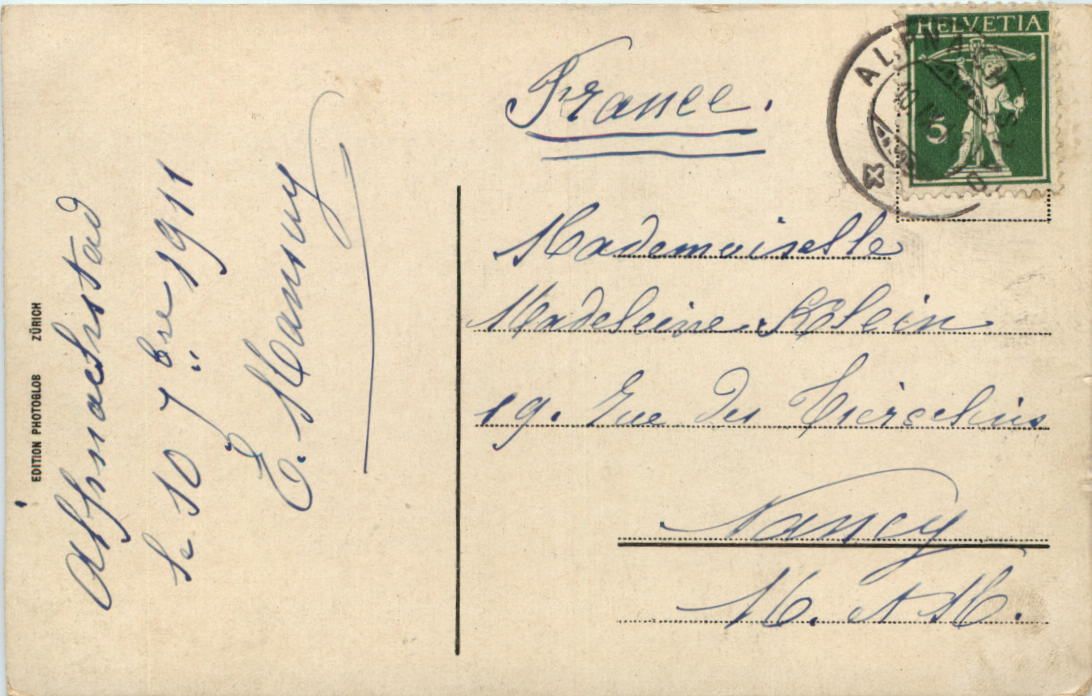 Alpnachstad
le 10 7bre 1911
E. Mansuy
EDITION PHOTOGLOB ZÜRICH
France.
HELVETIA
5
Mademoiselle
Madeleine Klein
19. Rue des Tiercelins
Nancy
M. et M.